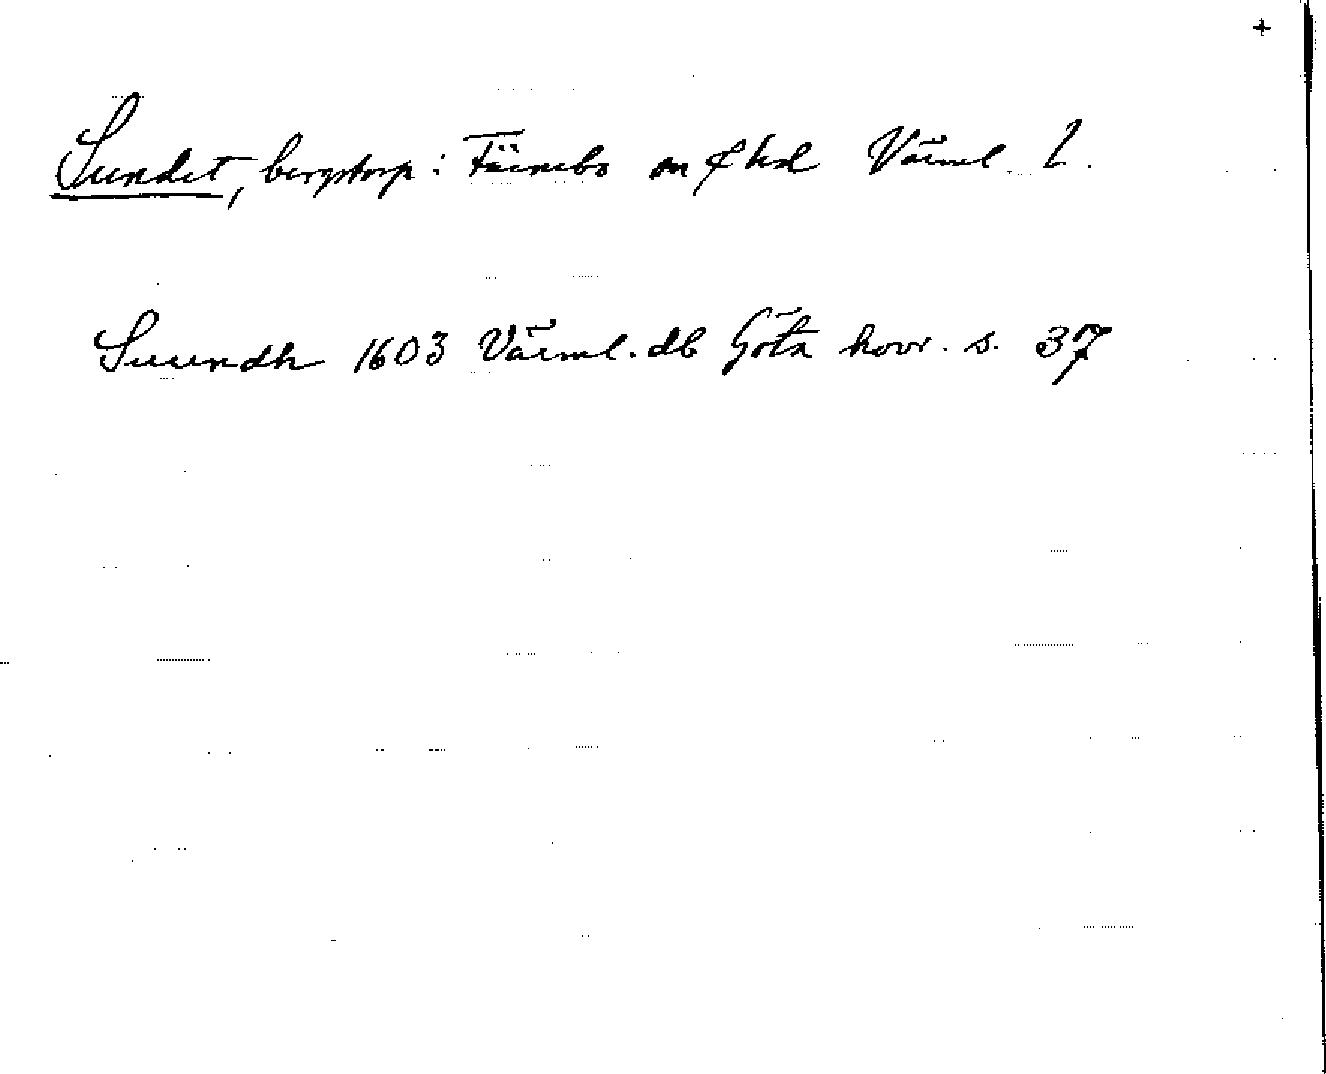 +
Sundet, bergstorp i Färnebo sn o hd Värml. l.
Suundh 1603 Värml. db Göta hovr. s. 37